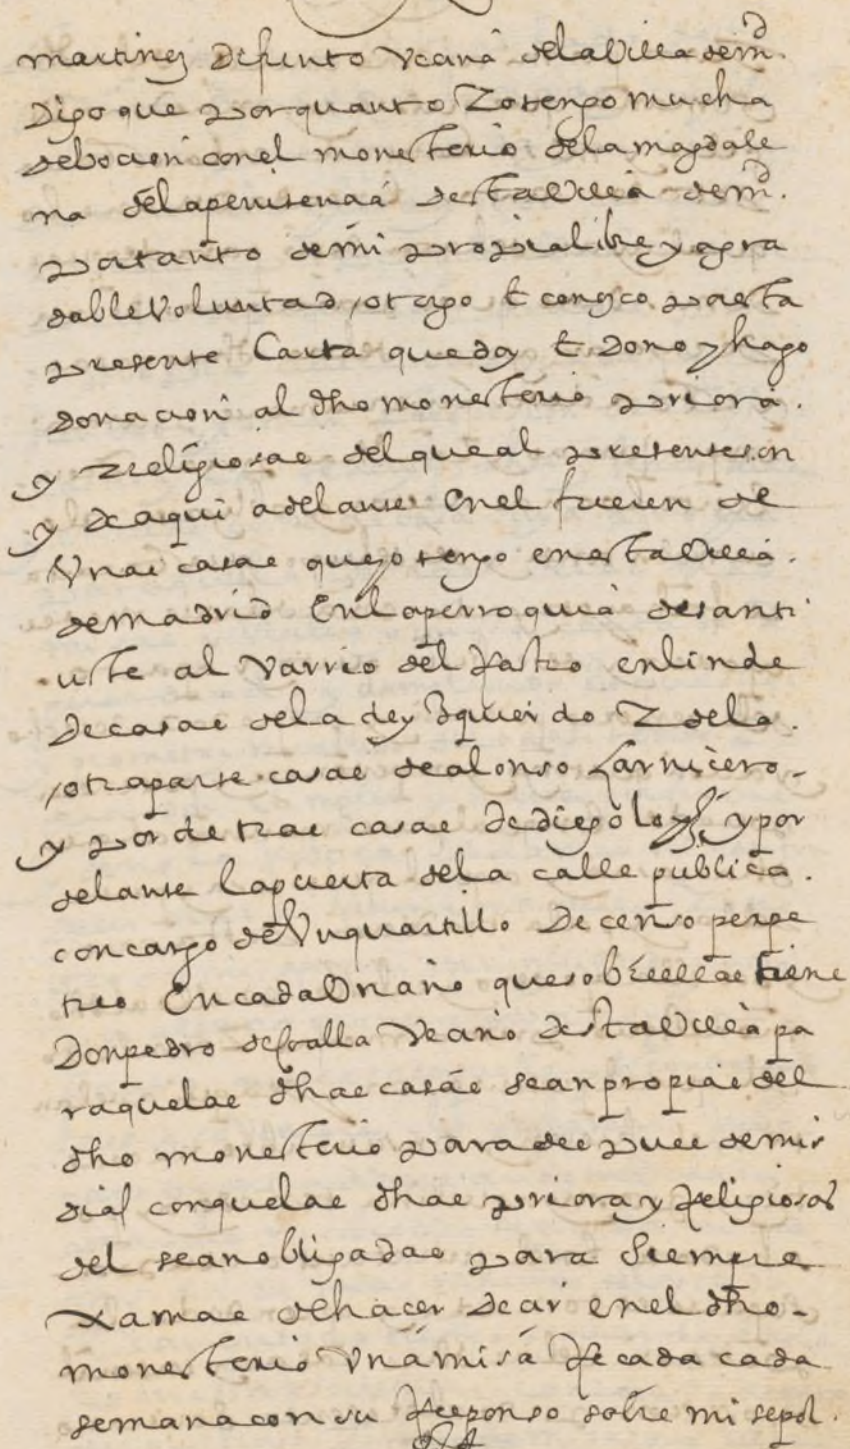 martinez de pinto vecina de la villa de md.
digo que por quanto yo tengo mucha
debocion con el monesterio de la magdale
na de la penitencia desta villa de md.
por tanto de mi propia libre y agra
dable voluntad otorgo E conozco por esta
presente Carta que doy E dono y hago
donacion al dho monesterio priora
y rreligiosas del que al presente son
y de aqui adelante en el fueren de
Unas casas que yo tengo en esta villa
de madrid En la perroquia de santi
uste al varrio del Rastro en linde
de casas de la de yzquierdo y de la
otra parte casas de alonso carnicero
y por detras casas de diego lopz y por
delante la puerta de la calle publica
con cargo de Un quartillo de censo perpe
tuo En cada Un año que sobre ellas tiene
Don pedro de vecino desta villa pa
ra que las dhas casas sean propias del
dho monesterio para despues de mis
dias con que las dhas priora y Religiosas
del sean obligadas para siempre
xamas de hacer decir en el dho
monesterio Una misa Recada cada
semana con su Responso sobre mi sepol